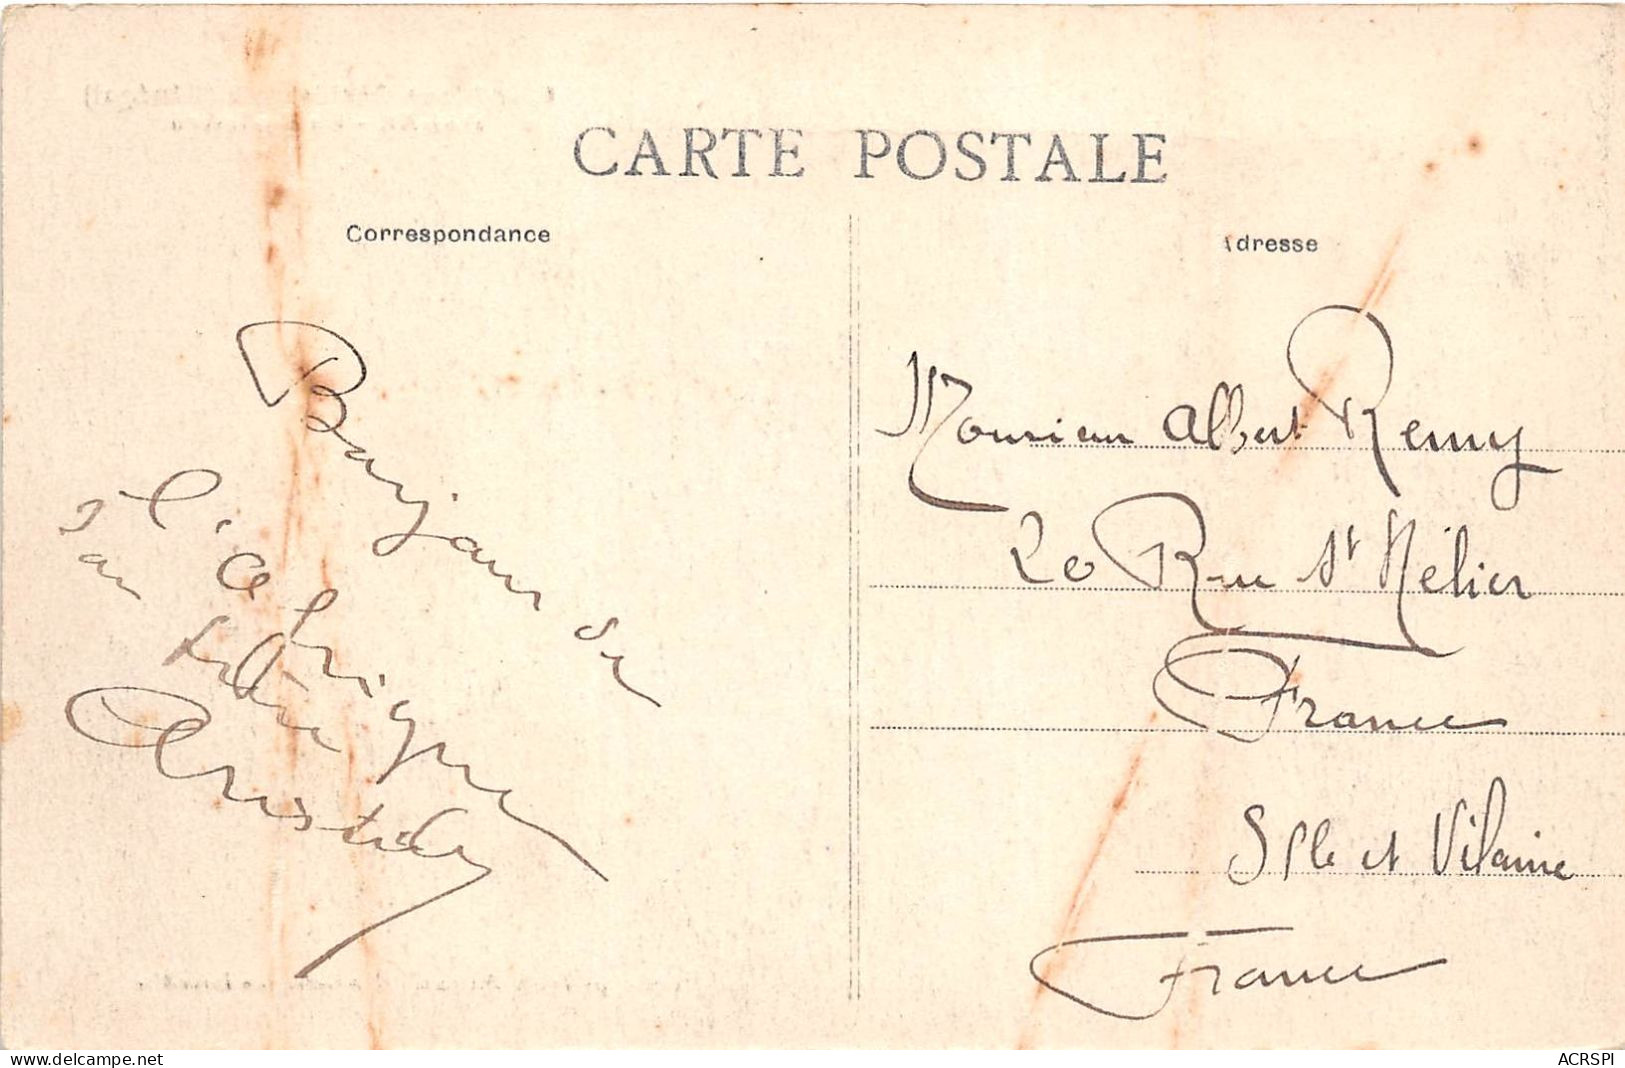 CARTE POSTALE
Correspondance
Adresse
Bonjour de
l'Afrique
ton frère
Aristide
Monsieur Albert Remy
20 Rue St Hélier
France
Ille et Vilaine
France
www.delcampe.net
ACRSPI